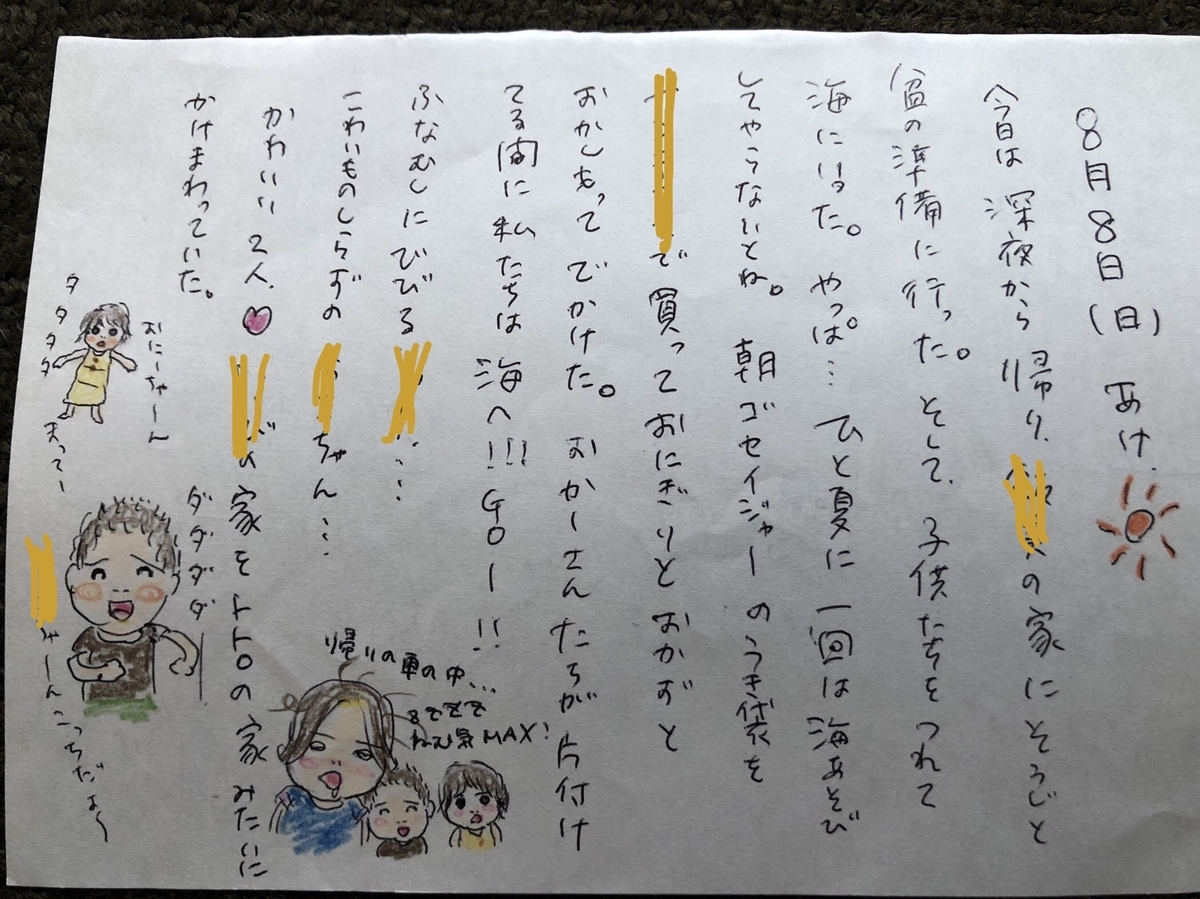 8月8日(日) あけ.
今日は 深夜から 帰り. の家にそうじと
盆の準備に行った。そして、子供たちをつれて
海にいった。やっぱ… ひと夏に 一回は 海あそび
してやらないとね。朝 ゴセイジャーの うき袋を
で 買って おにぎりと おかずと
おかしもって でかけた。おかーさん たちが 片付け
てる間に 私たちは 海へ!!! GOー!!
ふなむしに びびる …
こわいものしらずの ちゃん…
かわいい 2人.♥ の 家を トトロの 家 みたいに
かけまわっていた。
タタタタ
おにーちゃーん
まってー
ダダダダ
ちゃーん こっちだよ〜
帰りの車の中…
zzzz
ねむ気MAX!